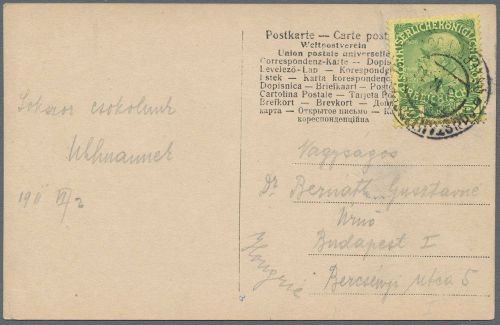 Postkarte — Carte post
Weltpostverein
Union postale universelle
Correspondenz-Karte — Dopis
Levelező-Lap — Korespond
Listek — Karta korespondenc
Dopisnica — Briefkaart — Post
Cartolina Postale — Tarjeta Pos
Brefkort — Brevkort — Дописн
карта — Открытое письмо —
кореспонденційна
KAISERLICHE KÖNIGLICHE
Sokszor csókolunk
191 VII/2
Nagyságos
Dr Bernáth Gusztávné
Úrnő
Budapest I
Bercsényi utca 5
Hongrie